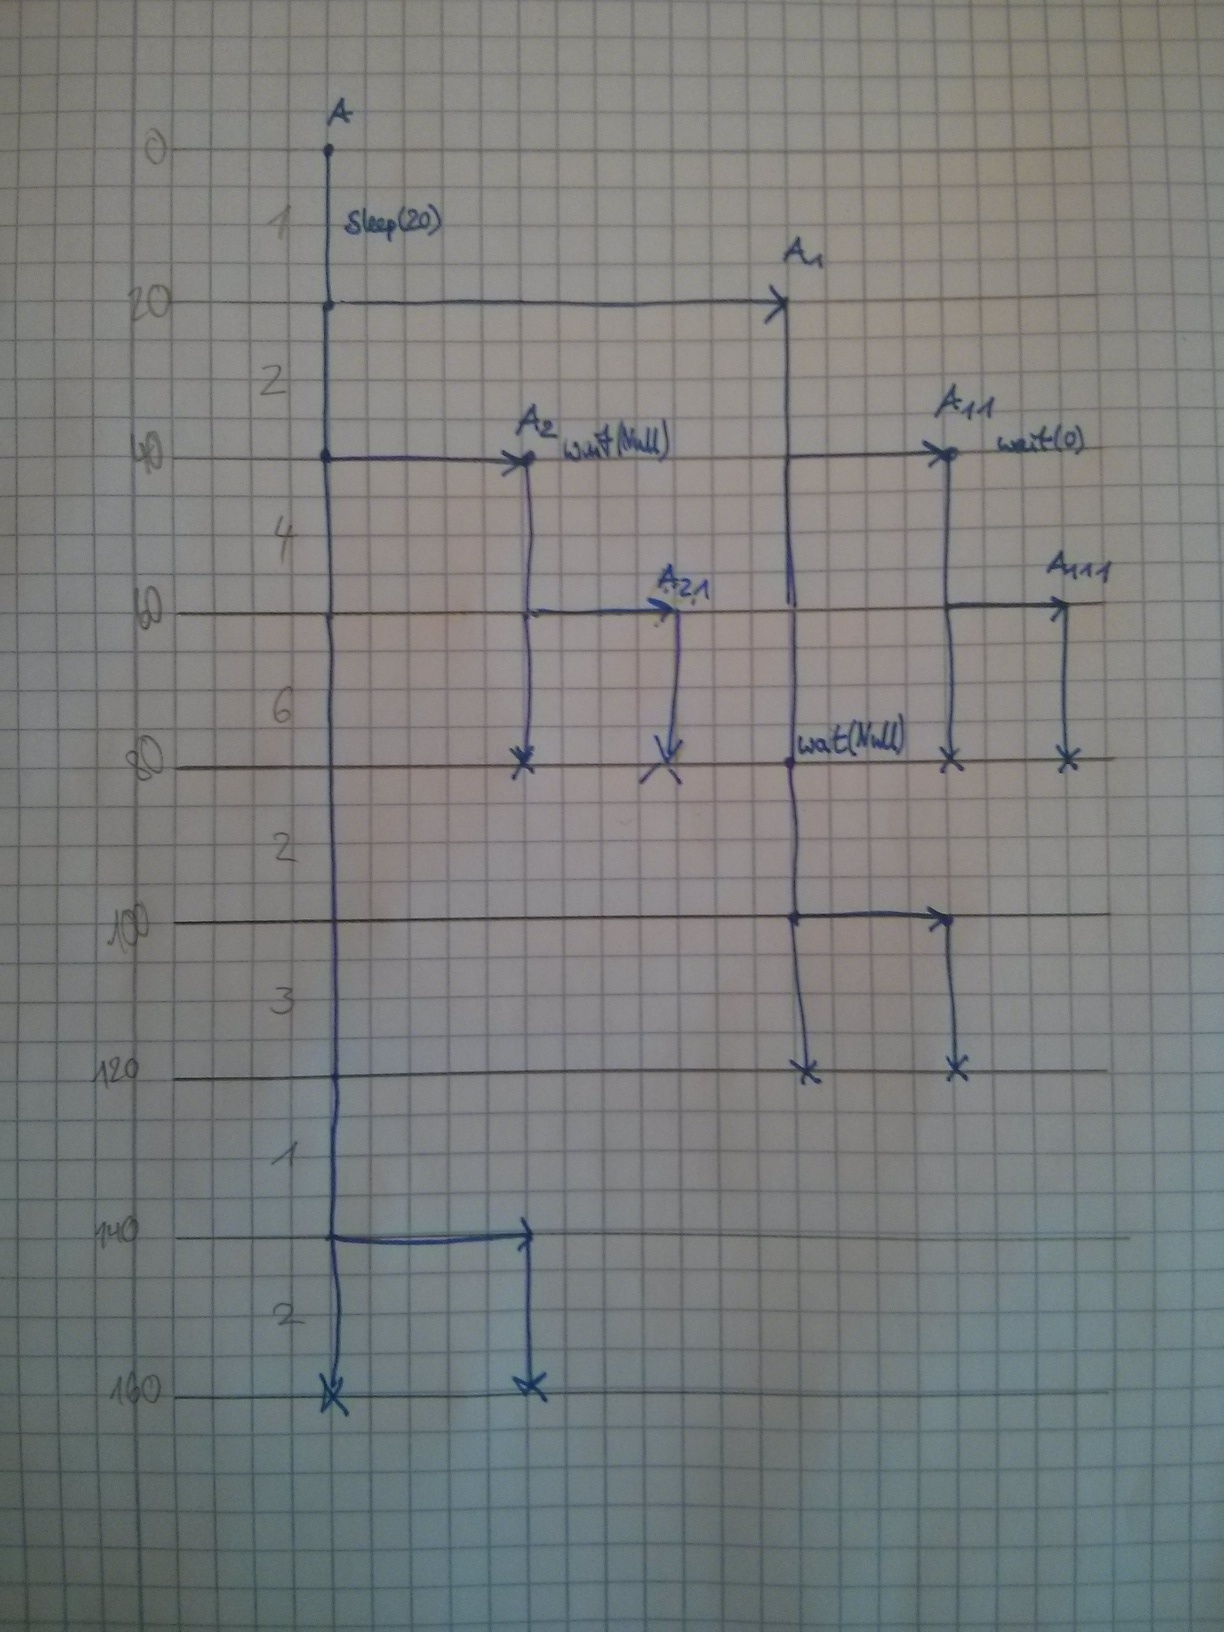 A
0
1 Sleep(20)
A1
20
2
A11
A2 wait(Null) wait(0)
40
4
A111
A21
60
6
wait(Null)
80
2
100
3
120
1
140
2
160